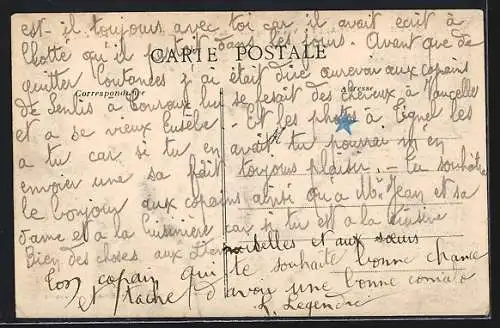 est-il toujours avec toi car il avait écrit à
CARTE POSTALE
qu'il dans les jours. Avant que de
quitter Coutances j'ai était dire aurevoir aux copains
Correspondance
Adresse
de Senlis à lui se fesait des cheveux à
et a ce vieux Eusèbe - Et les photos à les
a tu car si tu en avait tu pourrai m'en
envoier une sa fait toujours plaisir. - tu souhaite
le bonjour aux copains ainsi qu'a Mr Jean et sa
dame et a la cuisinière car si tu et a la cuisine
Bien des choses aux Demoiselles et aux sœurs
Ton copain qui te souhaite bonne chance
et tache d'avoir une bonne
L. Legendre